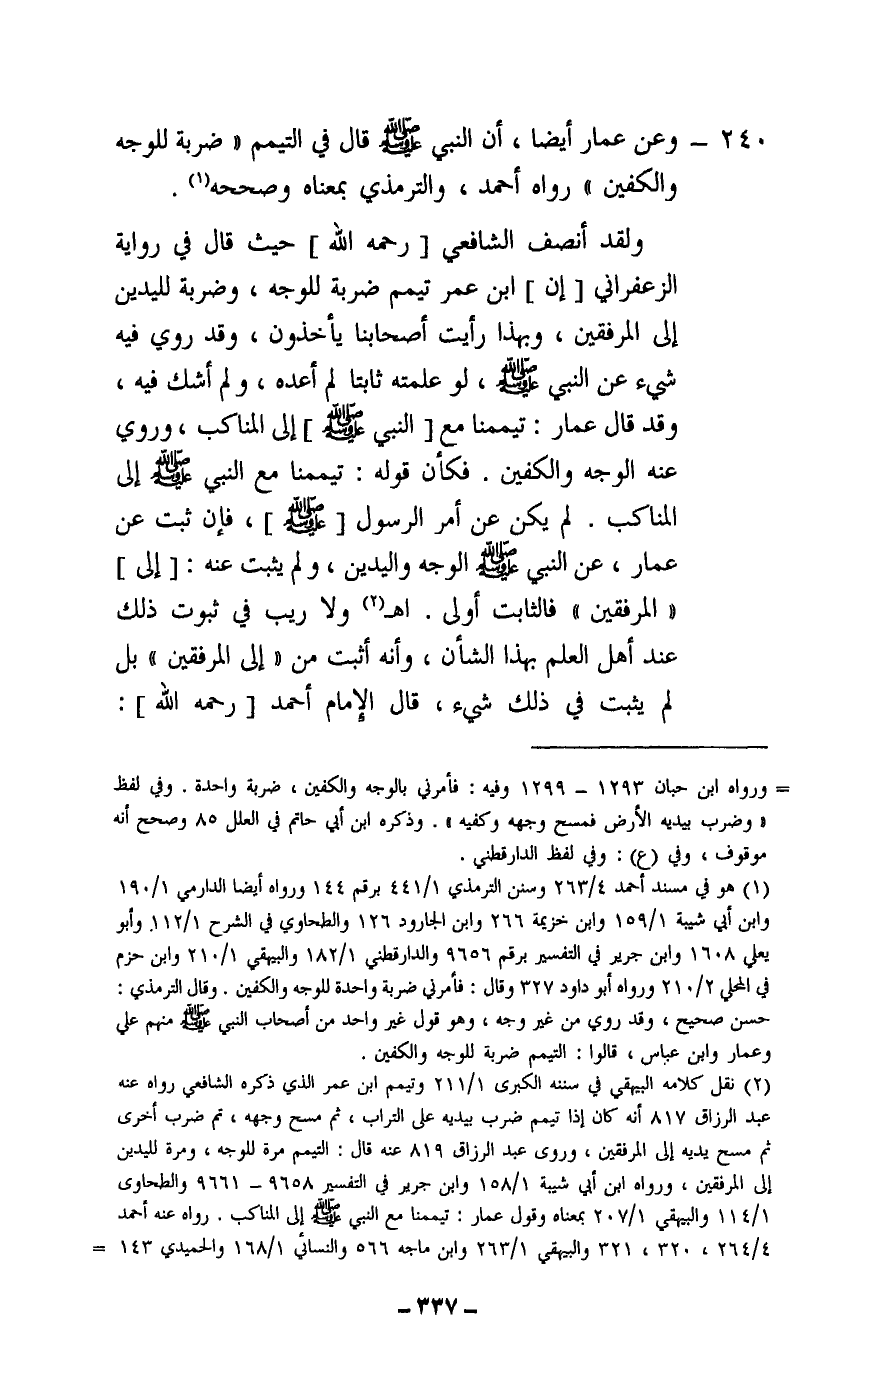 ٢٤٠ – وعن عمار أيضا ، أن النبي ﷺ قال في التيمم « ضربة للوجه
والكفين » رواه أحمد ، والترمذي بمعناه وصححه(١) .
ولقد أنصف الشافعي [ رحمه الله ] حيث قال في رواية
الزعفراني [ إن ] ابن عمر تيمم ضربة للوجه ، وضربة لليدين
إلى المرفقين ، وبهذا رأيت أصحابنا يأخذون ، وقد روي فيه
شيء عن النبي ﷺ ، لو علمته ثابتا لم أعده ، ولم أشك فيه ،
وقد قال عمار : تيممنا مع [ النبي ﷺ ] إلى المناكب ، وروي
عنه الوجه والكفين . فكأن قوله : تيممنا مع النبي ﷺ إلى
المناكب . لم يكن عن أمر الرسول [ ﷺ ] ، فإن ثبت عن
عمار ، عن النبي ﷺ الوجه واليدين ، ولم يثبت عنه : [ إلى ]
« المرفقين » فالثابت أولى . اهـ(٢) ولا ريب في ثبوت ذلك
عند أهل العلم بهذا الشأن ، وأنه أثبت من « إلى المرفقين » بل
لم يثبت في ذلك شيء ، قال الإمام أحمد [ رحمه الله ] :
= ورواه ابن حبان ١٢٩٣ – ١٢٩٩ وفيه : فأمرني بالوجه والكفين ، ضربة واحدة . وفي لفظ
« وضرب بيديه الأرض فمسح وجهه وكفيه » . وذكره ابن أبي حاتم في العلل ٨٥ وصحح أنه
موقوف ، وفي (ع) : وفي لفظ الدارقطني .
(١) هو في مسند أحمد ٢٦٣/٤ وسنن الترمذي ٤٤١/١ برقم ١٤٤ ورواه أيضا الدارمي ١٩٠/١
وابن أبي شيبة ١٥٩/١ وابن خزيمة ٢٦٦ وابن الجارود ١٢٦ والطحاوي في الشرح ١١٢/١. وأبو
يعلي ١٦٠٨ وابن جرير في التفسير برقم ٩٦٥٦ والدارقطني ١٨٢/١ والبيهقي ٢١٠/١ وابن حزم
في المحلي ٢١٠/٢ ورواه أبو داود ٣٢٧ وقال : فأمرني ضربة واحدة للوجه والكفين . وقال الترمذي :
حسن صحيح ، وقد روي من غير وجه ، وهو قول غير واحد من أصحاب النبي ﷺ منهم علي
وعمار وابن عباس ، قالوا : التيمم ضربة للوجه والكفين .
(٢) نقل كلامه البيهقي في سننه الكبرى ٢١١/١ وتيمم ابن عمر الذي ذكره الشافعي رواه عنه
عبد الرزاق ٨١٧ أنه كان إذا تيمم ضرب بيديه على التراب ، ثم مسح وجهه ، تم ضرب أخرى
ثم مسح يديه إلى المرفقين ، وروى عبد الرزاق ٨١٩ عنه قال : التيمم مرة للوجه ، ومرة لليدين
إلى المرفقين ، ورواه ابن أبي شيبة ١٥٨/١ وابن جرير في التفسير ٩٦٥٨ – ٩٦٦١ والطحاوى
١١٤/١ والبيهقي ٢٠٧/١ بمعناه وقول عمار : تيممنا مع النبي ﷺ إلى المناكب . رواه عنه أحمد
٢٦٤/٤ ، ٣٢٠ ، ٣٢١ والبيهقي ٢٦٣/١ وابن ماجه ٥٦٦ والنسائي ١٦٨/١ والحميدي ١٤٣ =
– ٣٣٧ –